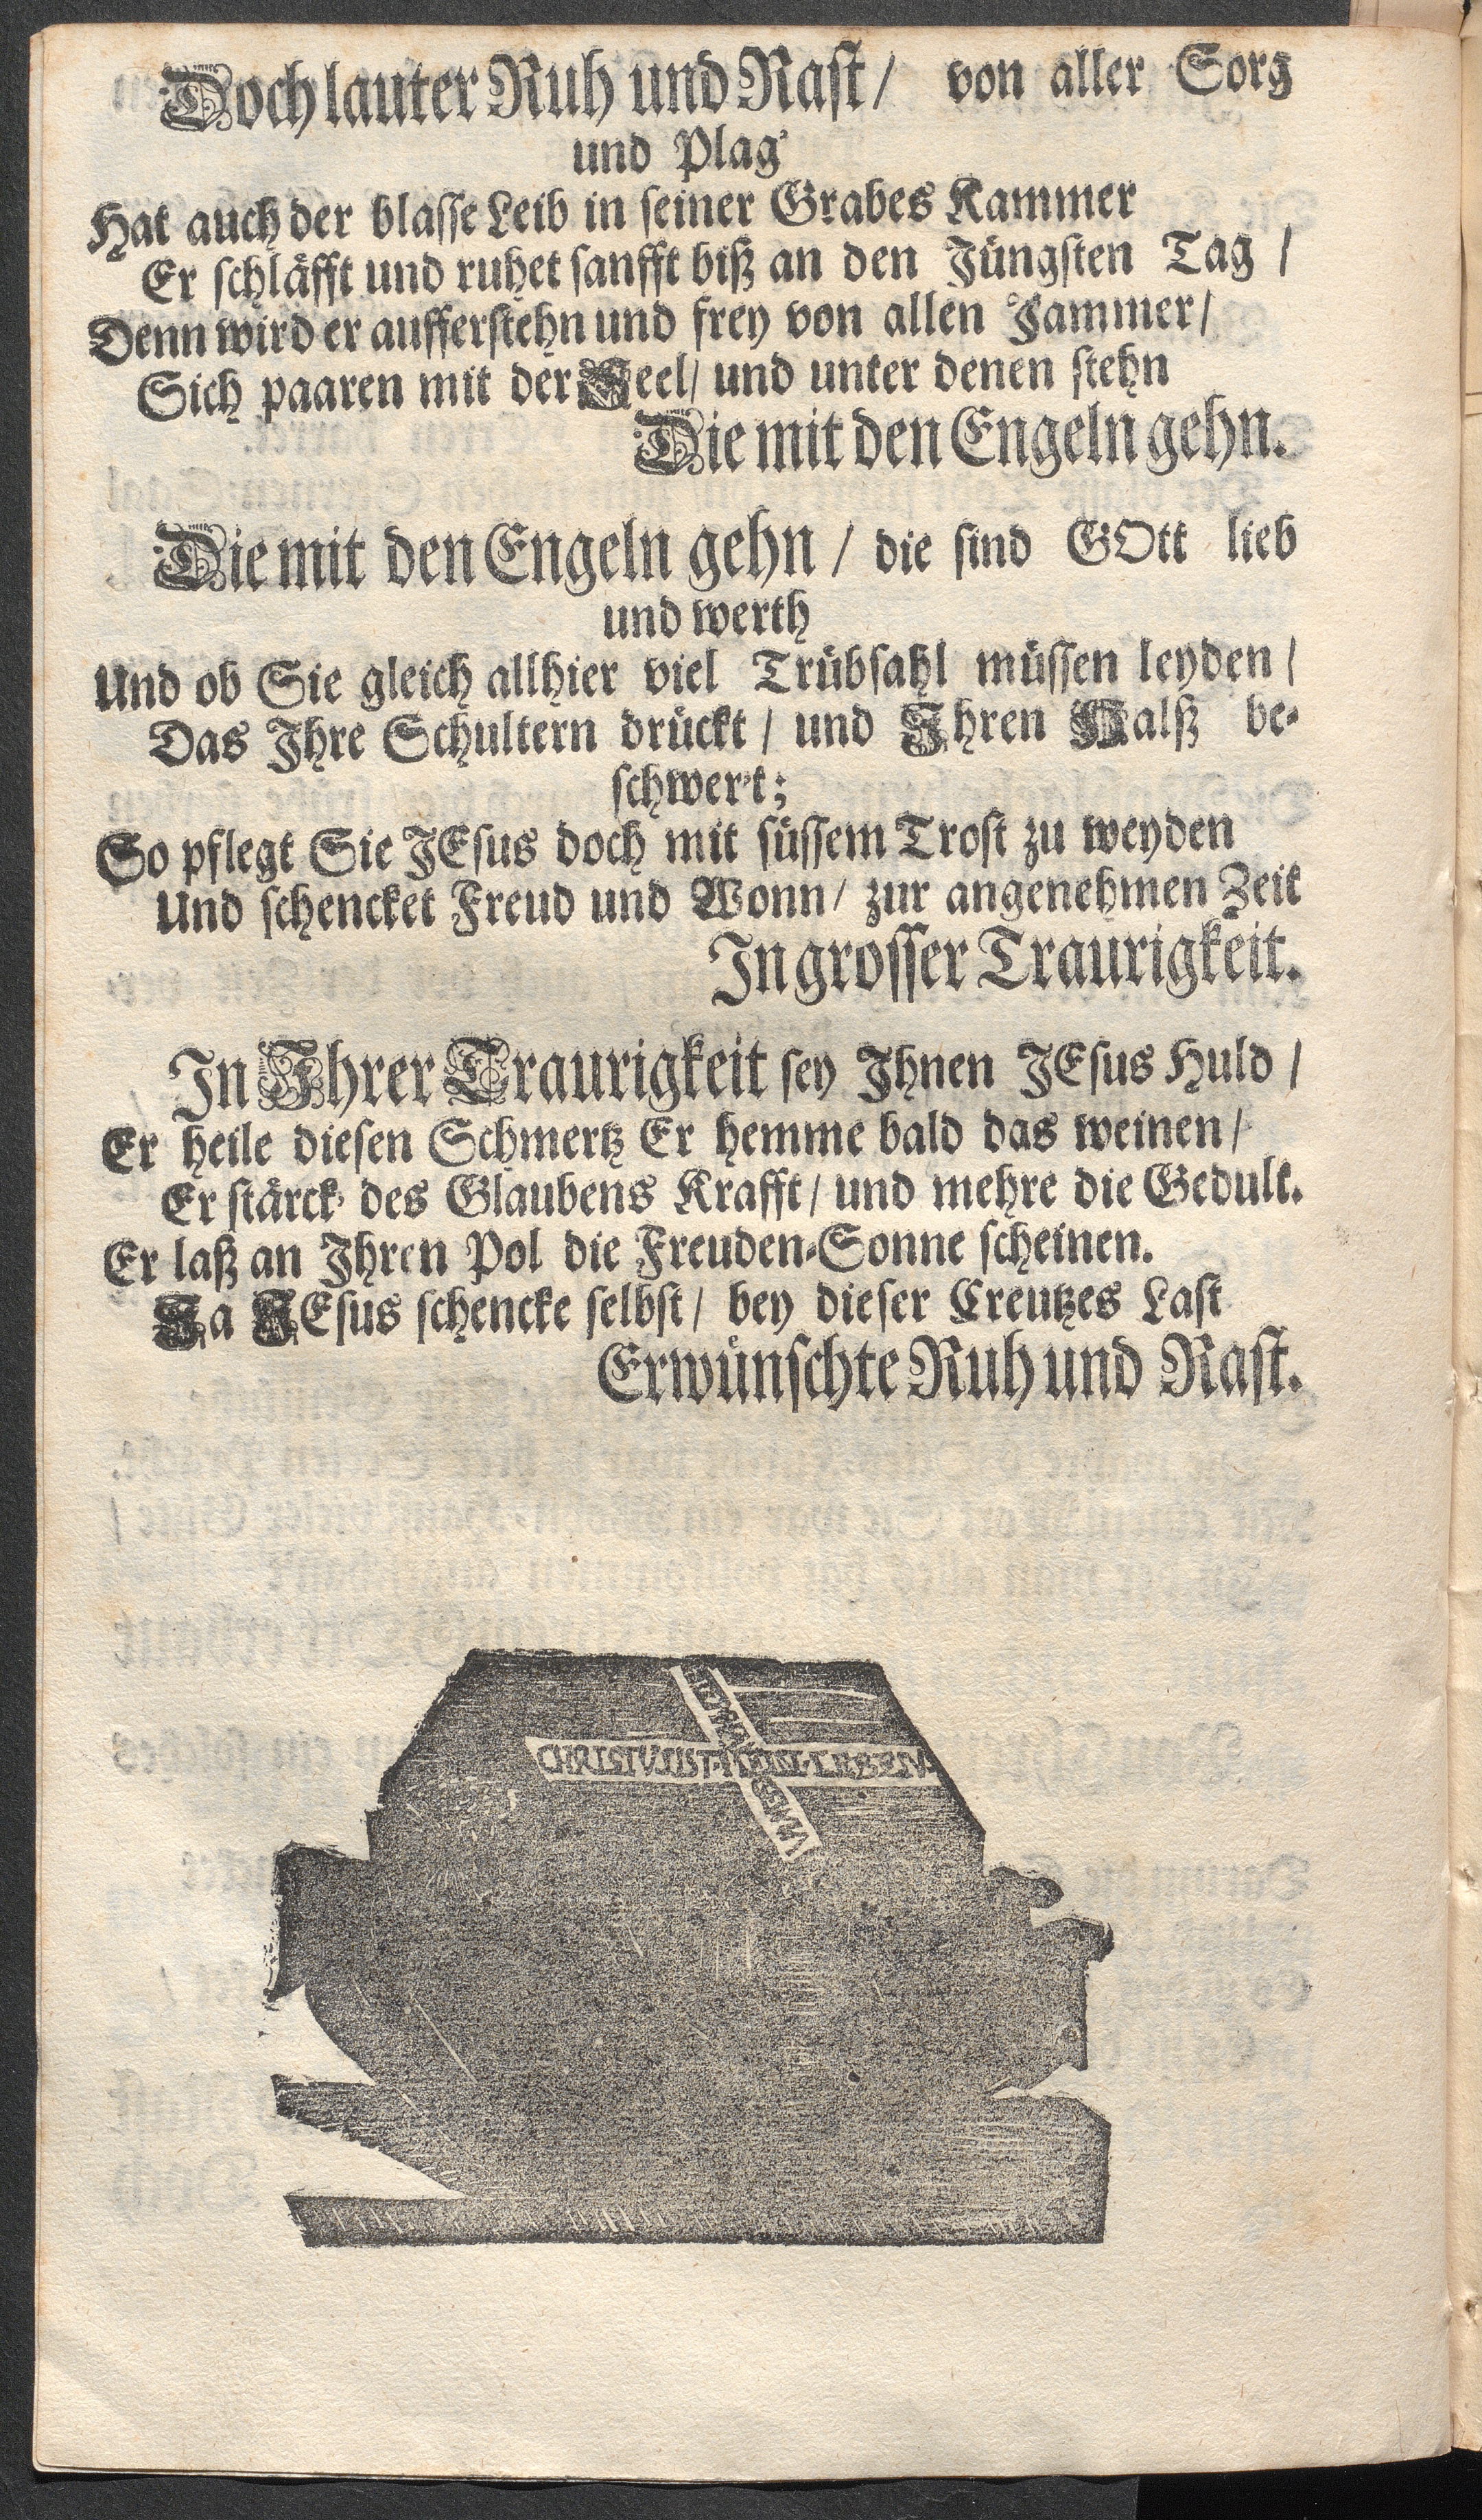 Doch lauter Ruh und Rast / von aller Sorg
und Plag
Hat auch der blasse Leib in seiner Grabes Kammer
Er schläfft und ruhet sanfft biß an den Jüngsten Tag /
Denn wird er aufferstehn und frey von allen Jammer /
Sich paaren mit der Seel / und unter denen stehn
Die mit den Engeln gehn.
Die mit den Engeln gehn / die sind GOtt lieb
und werth
Und ob Sie gleich allhier viel Trübsahl müssen leyden /
Das Ihre Schultern drückt / und Ihren Halß be-
schwert;
So pflegt Sie JEsus doch mit süssem Trost zu weyden
Und schencket Freud und Wonn / zur angenehmen Zeit
In grosser Traurigkeit.
In Ihrer Traurigkeit sey Ihnen JEsus Huld /
Er heile diesen Schmertz Er hemme bald das weinen /
Er stärck des Glaubens Krafft / und mehre die Gedult.
Er laß an Ihren Pol die Freuden-Sonne scheinen.
Ja JEsus schencke selbst / bey dieser Creutzes Last
Erwünschte Ruh und Rast.
CHRISTVS IST MEIN LEBEN